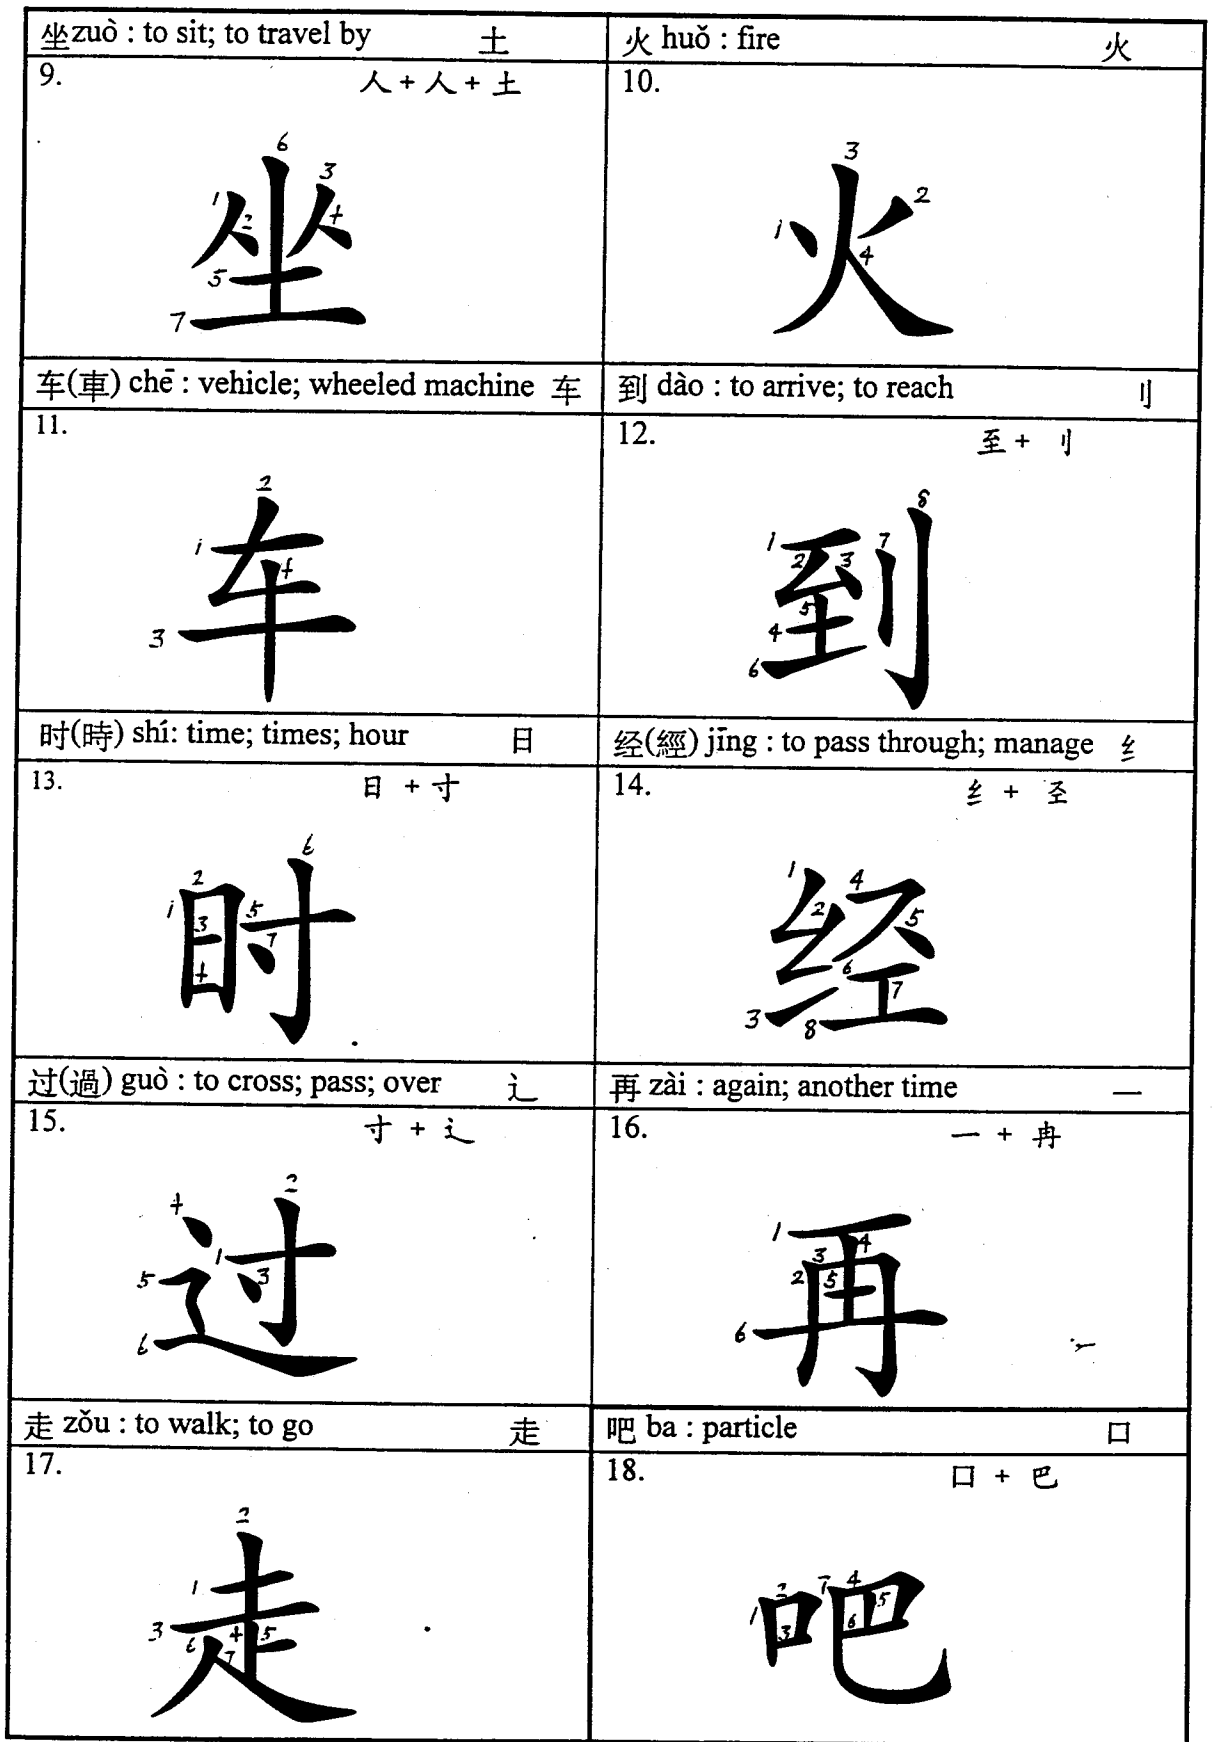 坐zuò : to sit; to travel by 土
9. 人 + 人 + 土
坐
1 2 3 4 5 6 7
火 huǒ : fire 火
10.
火
1 2 3 4
车(車) chē : vehicle; wheeled machine 车
11.
车
1 2 3 4
到 dào : to arrive; to reach 刂
12. 至 + 刂
到
1 2 3 4 5 6 7 8
时(時) shí: time; times; hour 日
13. 日 + 寸
时
1 2 3 4 5 6 7
经(經) jīng : to pass through; manage 纟
14. 纟 + 圣
经
1 2 3 4 5 6 7 8
过(過) guò : to cross; pass; over 辶
15. 寸 + 辶
过
1 2 3 4 5 6
再 zài : again; another time 一
16. 一 + 冉
再
1 2 3 4 5 6
走 zǒu : to walk; to go 走
17.
走
1 2 3 4 5 6 7
吧 ba : particle 口
18. 口 + 巴
吧
1 2 3 4 5 6 7